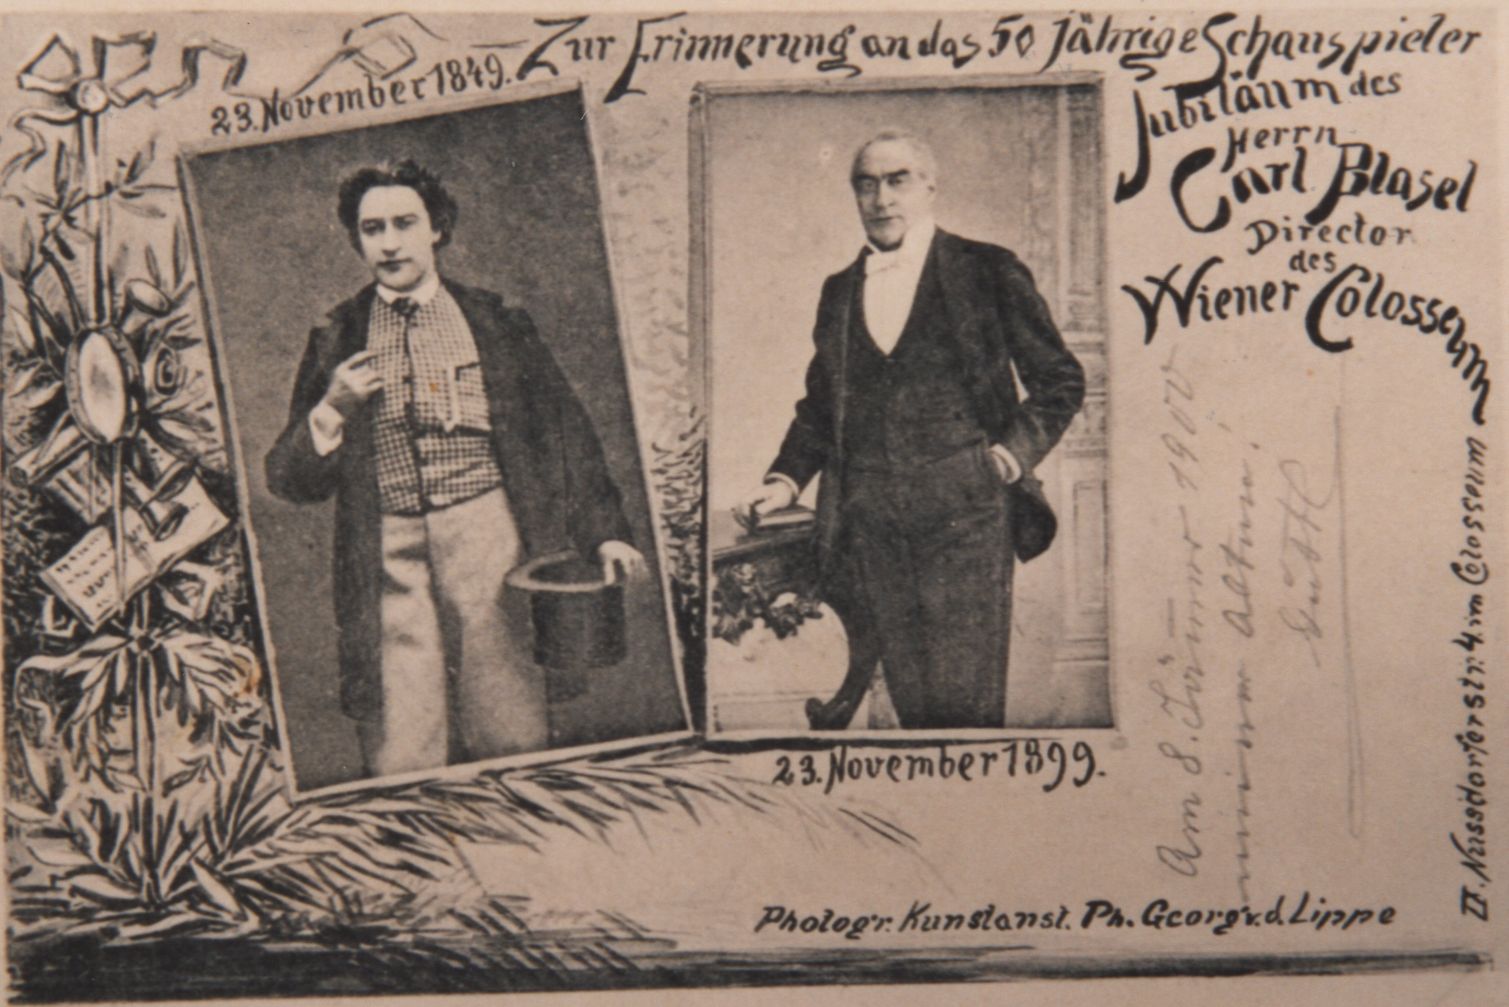 Zur Erinnerung an das 50 Jährige Schauspieler
Jubiläum des
Herrn
Carl Blasel
Director
des
Wiener Colosseum
23. November 1849.
23. November 1899.
IX. Nussdorferstr. 4. im Colosseum
Am 8. Jänner 1900
Photogr. Kunstanst. Ph. Georg v. d. Lippe